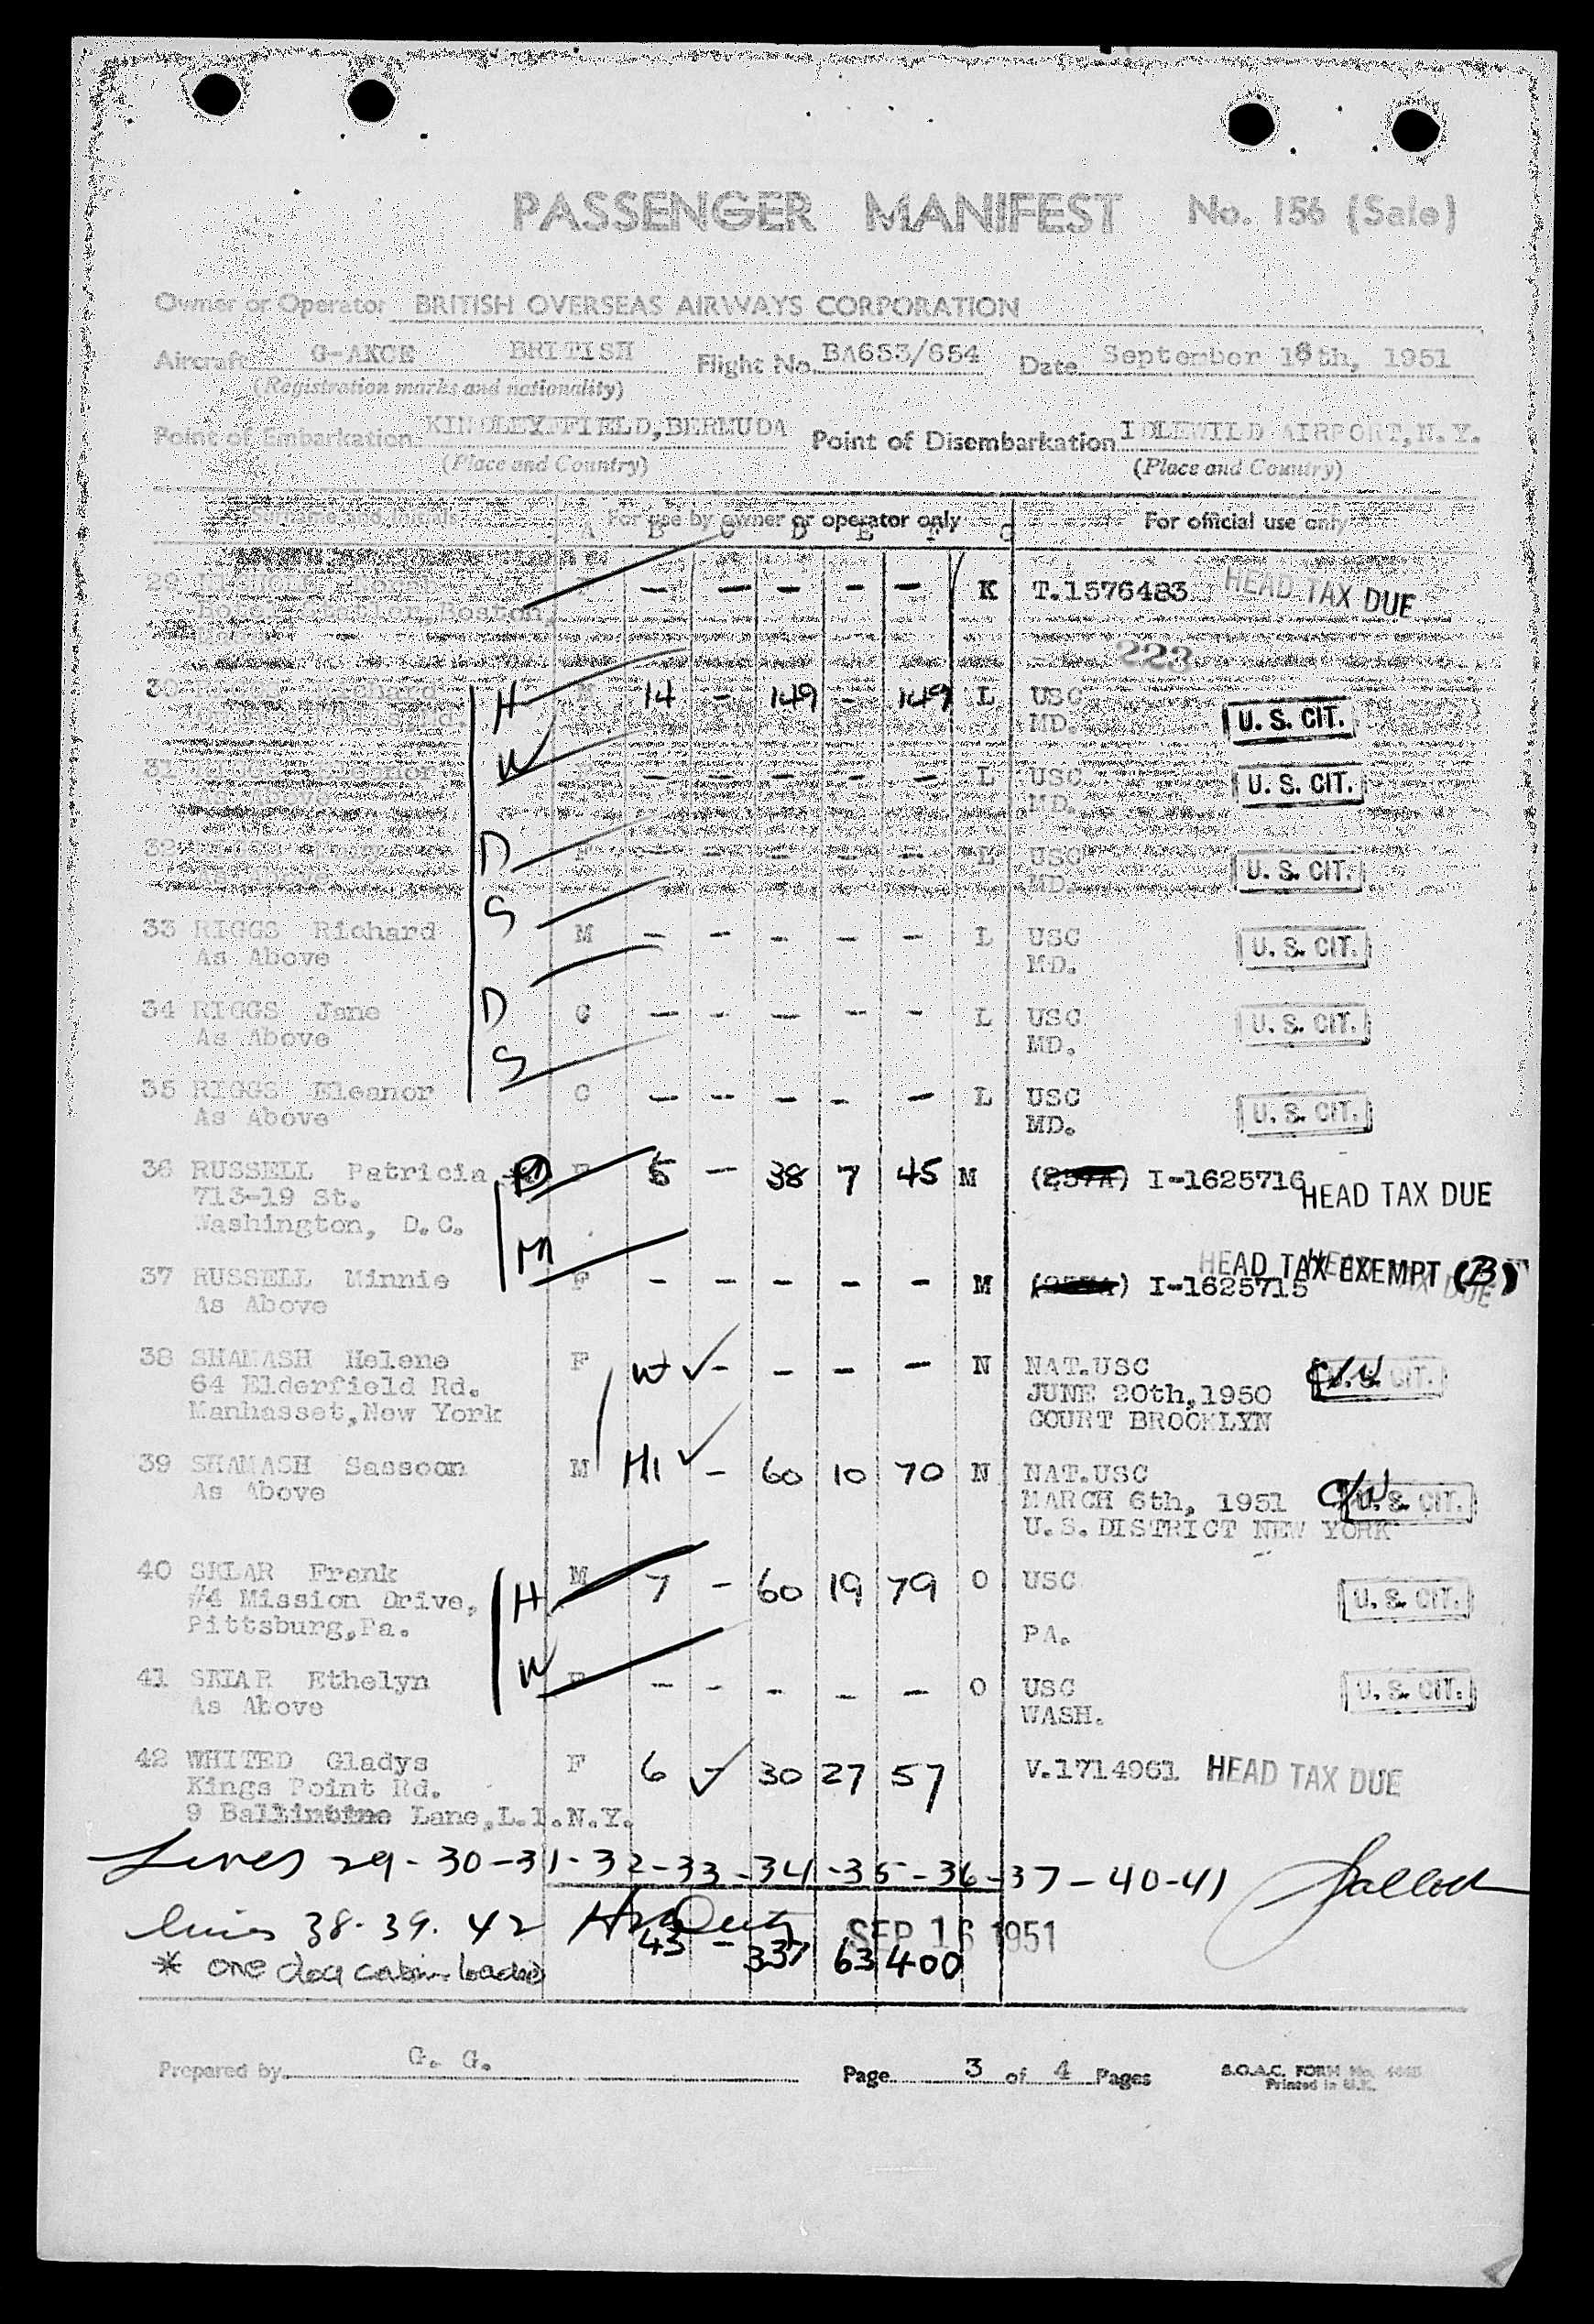 PASSENGER MANIFEST No. 156 (Sale)
Owner or Operator BRITISH OVERSEAS AIRWAYS CORPORATION
Aircraft G-AKCE BRITISH Flight No. BA653/654 Date September 16th, 1951
(Registration marks and nationality)
Point of Embarkation KINDLEY FIELD, BERMUDA Point of Disembarkation IDLEWILD AIRPORT, N.Y.
(Place and Country) (Place and Country)
Surname and Initials For use by owner or operator only For official use only
A B C D E F G
29 F — — — — — K T.1576483 HEAD TAX DUE
Hotel Statler, Boston,
223
30 RIGGS Richard H M 14 — 149 — 149 L USC U. S. CIT.
MD.
31 RIGGS Eleanor W — — — — — L USC U. S. CIT.
MD.
32 D F — — — — — L USC U. S. CIT.
As Above MD.
33 RIGGS Richard S M — — — — — L USC U. S. CIT.
As Above MD.
34 RIGGS Jane D C — — — — — L USC U. S. CIT.
As Above MD.
35 RIGGS Eleanor S C — — — — — L USC U. S. CIT.
As Above MD.
36 RUSSELL Patricia * D F 5 — 38 7 45 M I-1625716 HEAD TAX DUE
713-19 St.
Washington, D.C.
M HEAD TAX EXEMPT (B)
37 RUSSELL Minnie F — — — — — M I-1625715 HEAD TAX DUE
As Above
38 SHAMASH Helene F W ✓ — — — — N NAT.USC C/N U. S. CIT.
64 Elderfield Rd. JUNE 20th,1950
Manhasset,New York COURT BROOKLYN
39 SHAMASH Sassoon M H 1 ✓ — 60 10 70 N NAT.USC
As Above MARCH 6th, 1951 C/N U. S. CIT.
U.S.DISTRICT NEW YORK
40 SKLAR Frank H M 7 — 60 19 79 O USC U. S. CIT.
#4 Mission Drive,
Pittsburg,Pa. PA.
41 SKLAR Ethelyn W F — — — — — O USC U. S. CIT.
As Above WASH.
42 WHITED Gladys F 6 ✓ 30 27 57 V.1714961 HEAD TAX DUE
Kings Point Rd.
9 Ballintine Lane,L.I.N.Y.
Lines 29-30-31-32-33-34-35-36-37-40-41
lines 38. 39. 42 SEP 16 1951
43 — 337 63 400
* one dog cabin loaded
Prepared by G. G. Page 3 of 4 Pages B.O.A.C. FORM No.
Printed in U.K.